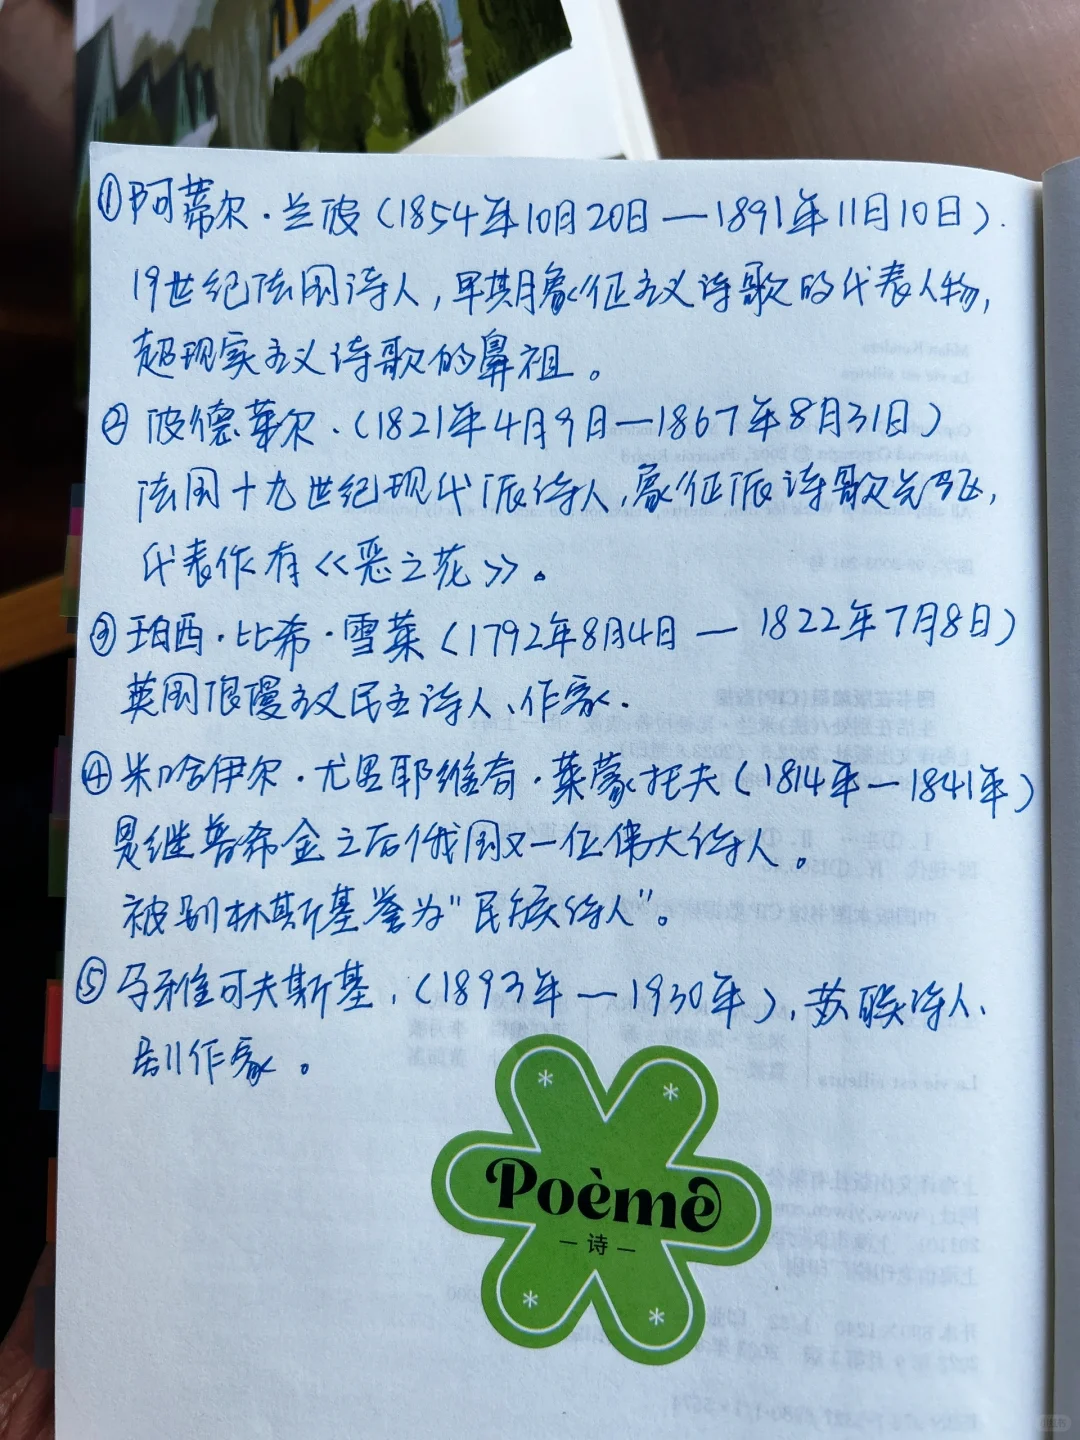 ①阿蒂尔·兰波(1854年10月20日—1891年11月10日).
19世纪法国诗人,早期象征主义诗歌的代表人物,
超现实主义诗歌的鼻祖。
②波德莱尔.(1821年4月9日—1867年8月31日)
法国十九世纪现代派诗人,象征派诗歌先驱,
代表作有《恶之花》。
③珀西·比希·雪莱(1792年8月4日—1822年7月8日)
英国浪漫主义民主诗人、作家.
④米哈伊尔·尤里耶维奇·莱蒙托夫(1814年—1841年)
是继普希金之后俄国又一位伟大诗人。
被别林斯基誉为"民族诗人"。
⑤马雅可夫斯基,(1893年—1930年),苏联诗人、
剧作家。
Poème
—诗—